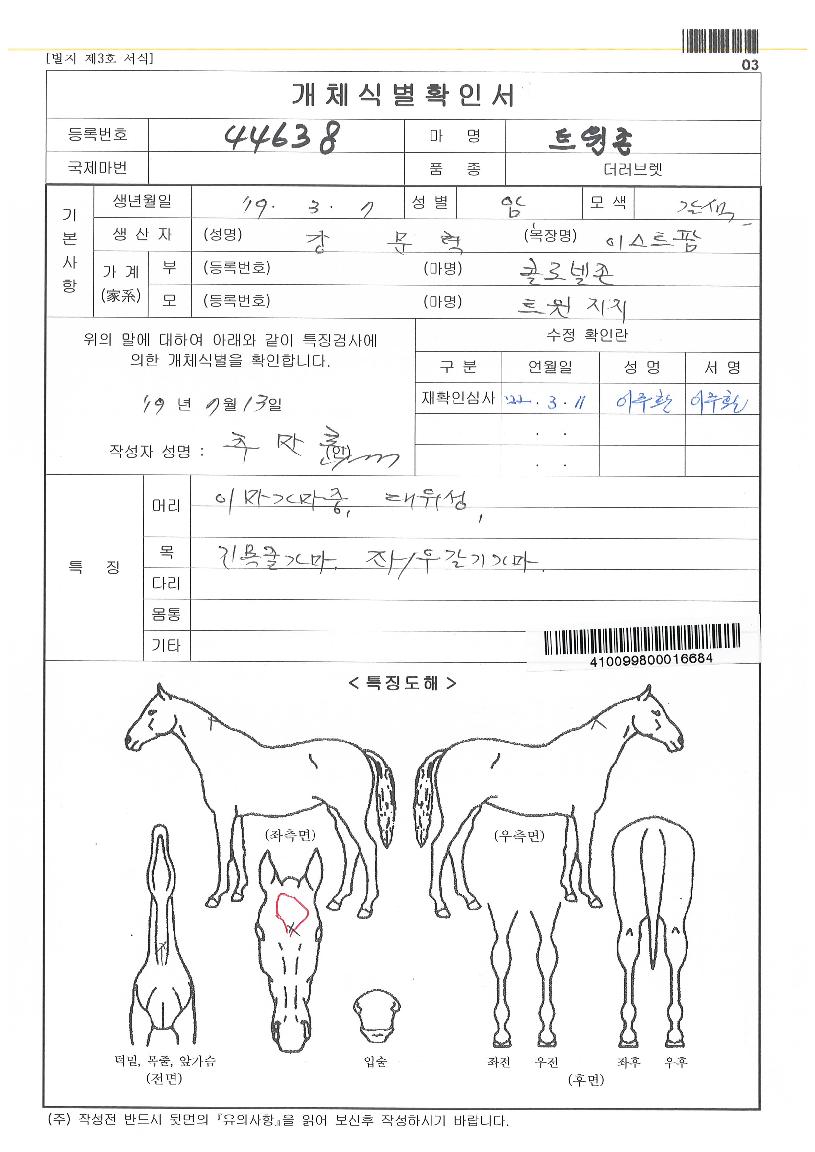 [별지 제3호 서식]
03
개체식별확인서
등록번호 44638 마 명 트윈존
국제마번 품 종 더러브렛
기본사항
생년월일 '19. 3. 7 성 별 암 모 색 갈색
생 산 자 (성명) 강 문 혁 (목장명) 이스트팜
가 계 (家系) 부 (등록번호) (마명) 콜로넬존
모 (등록번호) (마명) 트윈 지지
위의 말에 대하여 아래와 같이 특징검사에
의한 개체식별을 확인합니다.
'19 년 7월 13일
작성자 성명 : (인)
수정 확인란
구 분 연월일 성 명 서 명
재확인심사 '22. 3. 11 이주환 이주환
. .
. .
특 징
머리 이마가마중, 대위성,
목 긴목줄가마. 좌/우갈기가마.
다리
몸통
기타
410099800016684
< 특징도해 >
(좌측면) (우측면)
턱밑, 목줄, 앞가슴
(전면)
입술
좌전 우전 좌후 우후
(후면)
(주) 작성전 반드시 뒷면의 『유의사항』을 읽어 보신후 작성하시기 바랍니다.